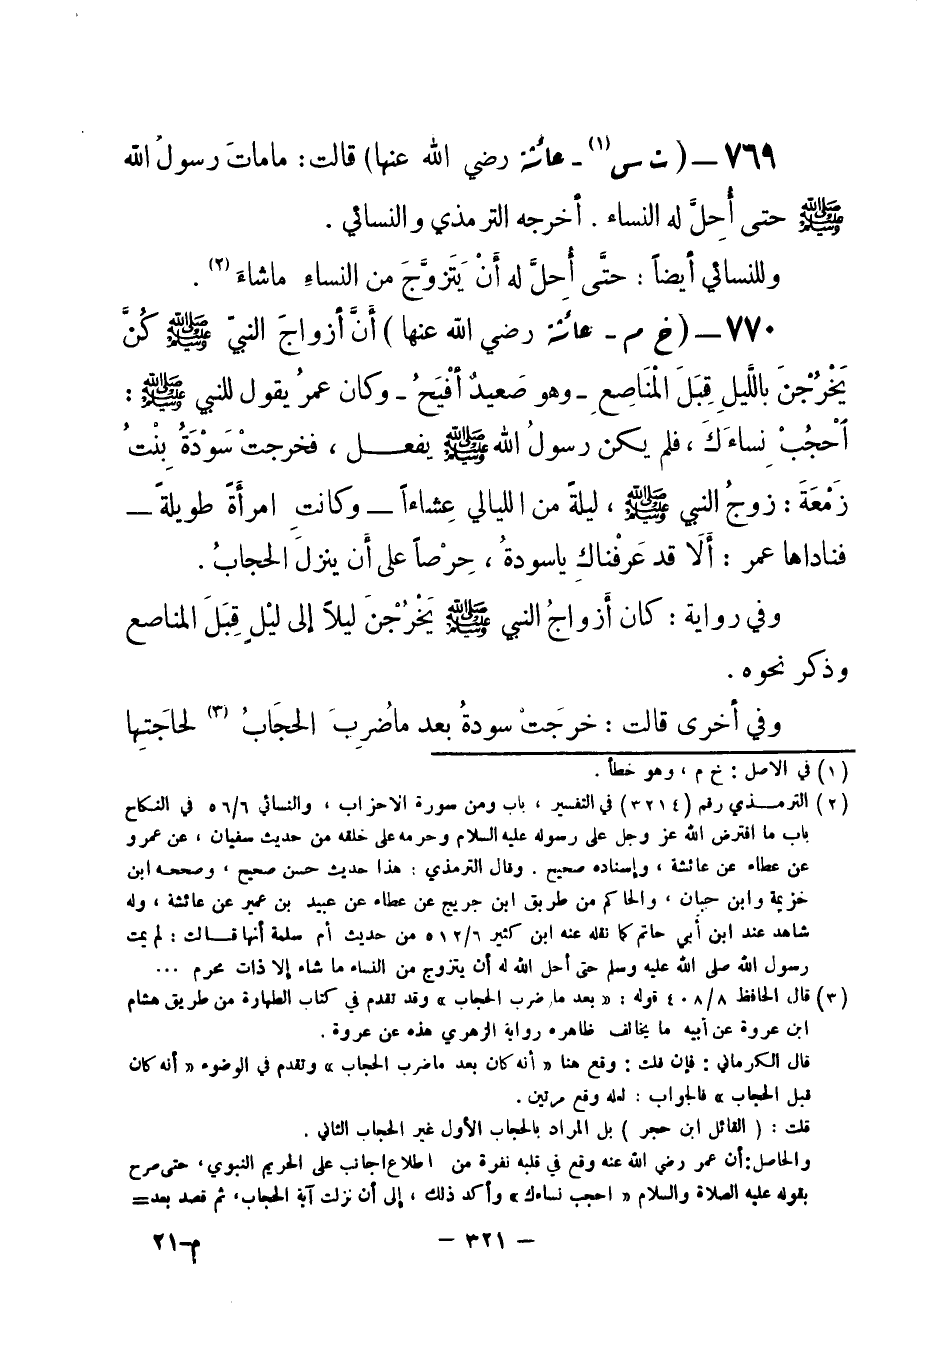 ٧٦٩ ــ ( ت س (١) - عائشة رضي الله عنها ) قالت : ما ماتَ رسولُ الله
ﷺ حتى أُحِلَّ له النساء . أخرجه الترمذي والنسائي .
وللنسائي أيضاً : حتَّى أُحِلَّ له أَنْ يَتَزوَّجَ من النساءِ ماشاءَ (٢) .
٧٧٠ ــ ( خ م - عائشة رضي الله عنها ) أَنَّ أزواجَ النبيّ ﷺ كُنَّ
يَخْرُجْنَ باللَّيلِ قِبَلَ المْنَاصِعِ - وهو صَعيدٌ أَفْيَحُ - وكان عمرُ يقول للنبي ﷺ :
اْحْجُبْ نِساءَكَ ، فلم يكن رسولُ الله ﷺ يفعــل ، فخرجتْ سَوْدَةُ بِنْتُ
زَمْعَةَ : زوجُ النبي ﷺ ، ليلةً من الليالي عِشاءاً ــ وكانتِ امرأَةً طويلةً ــ
فناداها عمر : أَلَا قد عَرفْناكِ ياسودةُ ، حِرْصاً على أن ينزلَ الحجابُ .
وفي رواية : كان أزواجُ النبي ﷺ يَخْرُجْنَ ليلاً إلى ليْلٍ قِبَلَ المناصع
وذكر نحوه .
وفي أخرى قالت : خرجَتْ سودةُ بعد ماضُرِبَ الحجَابُ (٣) لحاجَتِها
(١) في الاصل : خ م ، وهو خطأ .
(٢) الترمـذي رقم (٣٢١٤) في التفسير ، باب ومن سورة الاحزاب ، والنسائي ٥٦/٦ في النكاح
باب ما افترض الله عز وجل على رسوله عليه السلام وحرمه على خلقه من حديث سفيان ، عن عمرو
عن عطاء عن عائشة ، وإسناده صحيح . وقال الترمذي : هذا حديث حسن صحيح ، وصححه ابن
خزيمة وابن حبان ، والحاكم من طريق ابن جريج عن عطاء عن عبيد بن عمير عن عائشة ، وله
شاهد عند ابن أبي حاتم كما نقله عنه ابن كثير ٥١٢/٦ من حديث أم سلمة أنها قـالت : لم يمت
رسول الله صلى الله عليه وسلم حتى أحل الله له أن يتزوج من النساء ما شاء إلا ذات محرم ...
(٣) قال الحافظ ٤٠٨/٨ قوله : « بعد ما ضرب الحجاب » وقد تقدم في كتاب الطهارة من طريق هشام
ابن عروة عن أبيه ما يخالف ظاهره رواية الزهري هذه عن عروة .
قال الكرماني : فإن قلت : وقع هنا « أنه كان بعد ماضرب الحجاب » وتقدم في الوضوء « أنه كان
قبل الحجاب » فالجواب : لعله وقع مرتين .
قلت : ( القائل ابن حجر ) بل المراد بالحجاب الأول غير الحجاب الثاني .
والحاصل : أن عمر رضي الله عنه وقع في قلبه نفرة من اطلاع اجانب على الحريم النبوي ، حتى صرح
بقوله عليه الصلاة والسلام « احجب نساءك » وأكد ذلك ، إلى أن نزلت آية الحجاب ، ثم قصد بعد=
- ٣٢١ -
م-٢١